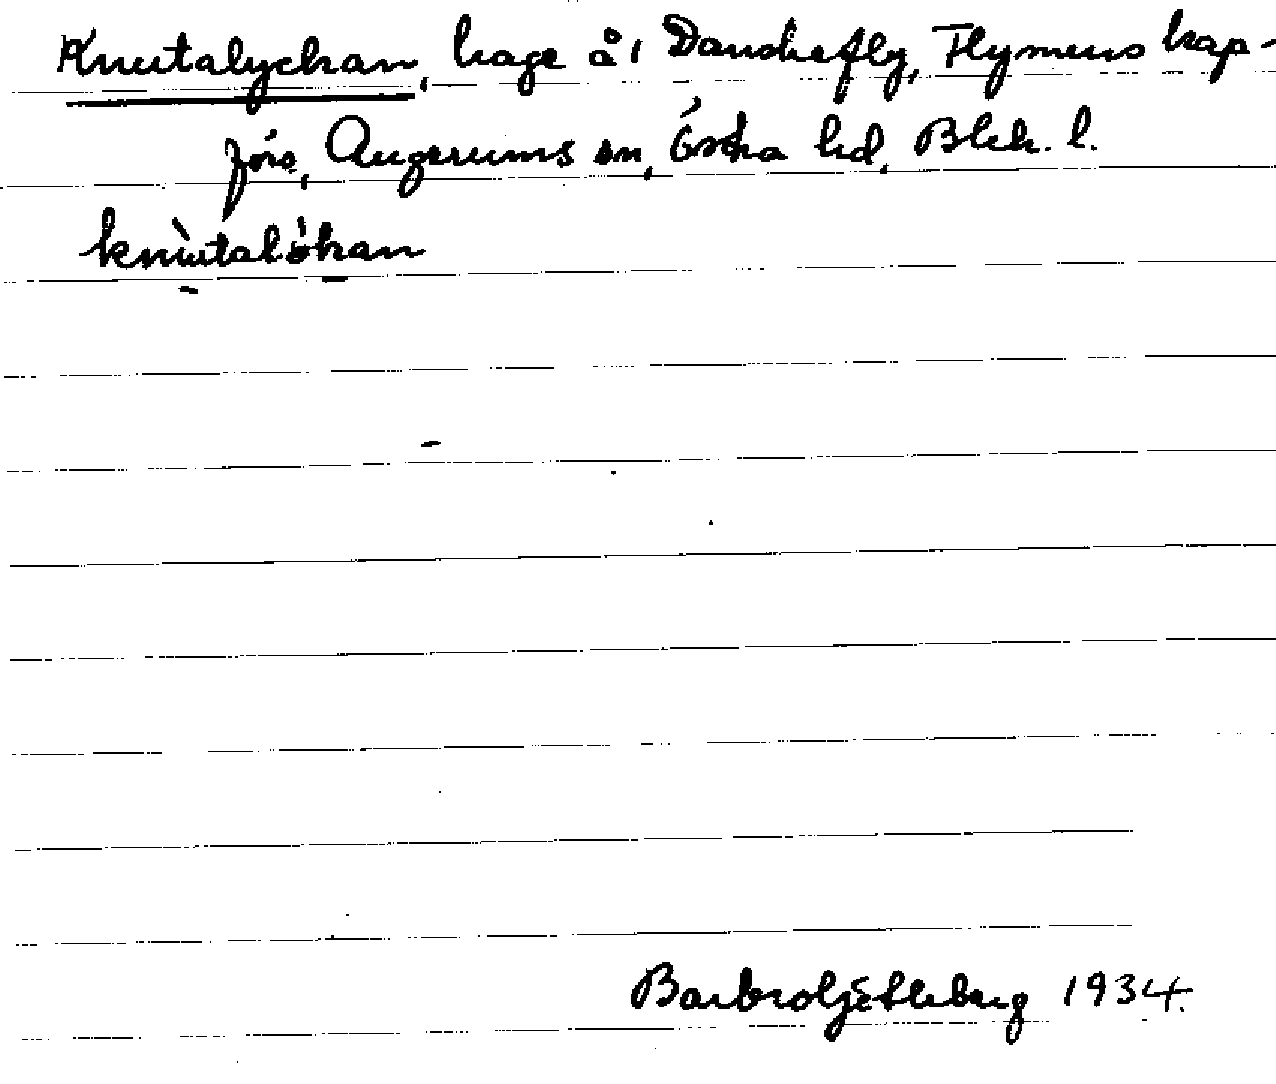 Knutalyckan, hage å, Danskefly, Flymens kap-
förs. Augerums sn, Östra hd, Blek. l.
knùtalỳkan
Barbro 1934.